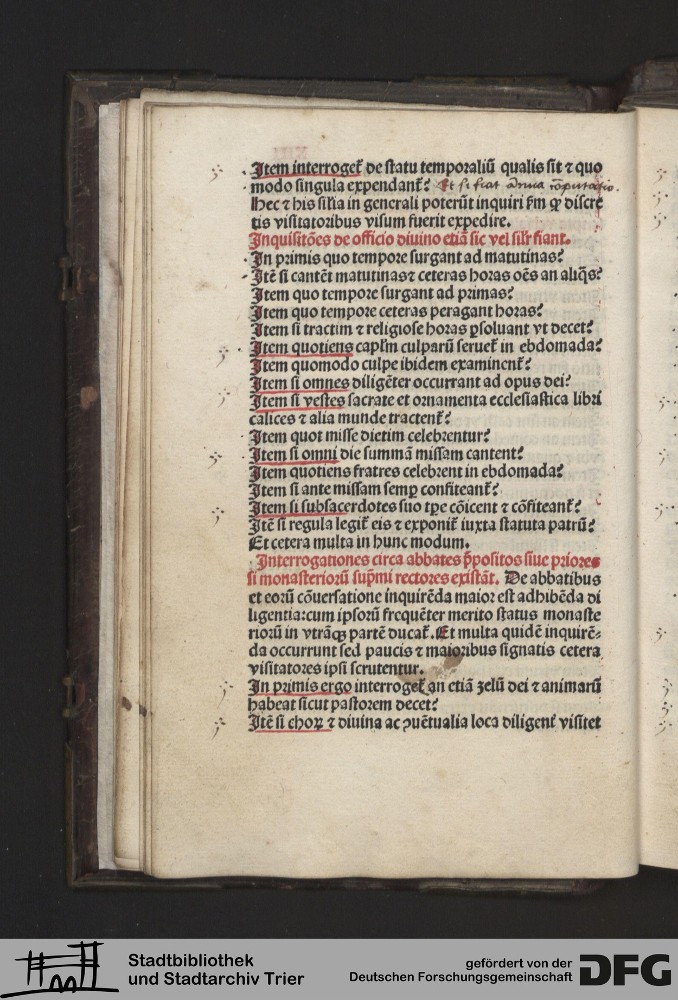 Item interroget᷑ de statu temporaliū qualis sit ⁊ quo
modo singula expendant᷑? Et si fiat annua cōputatio.
Hec ⁊ his sil'ia in generali poterūt inquiri fm ꝙ discre
tis visitatoribus visum fuerit expedire.
Inquisitōes de officio diuino etiā sic vel sil'r fiant.
In primis quo tempore surgant ad matutinas?
Itē si cantēt matutinas ⁊ ceteras horas oēs an aliq̄s?
Item quo tempore surgant ad primas?
Item quo tempore ceteras peragant horas?
Item si tractim ⁊ religiose horas ꝑsoluant vt decet?
Item quotiens capl'm culparū seruet᷑ in ebdomada?
Item quomodo culpe ibidem examinent᷑?
Item si omnes diligēter occurrant ad opus dei?
Item si vestes sacrate et ornamenta ecclesiastica libri
calices ⁊ alia munde tractent᷑?
Item quot misse dietim celebrentur?
Item si omni die summā missam cantent?
Item quotiens fratres celebrent in ebdomada?
Item si ante missam semꝑ confiteant᷑?
Item si subsacerdotes suo tp̄e cōicent ⁊ cōfiteant᷑?
Itē si regula legit᷑ eis ⁊ exponit᷑ iuxta statuta patrū?
Et cetera multa in hunc modum.
Interrogationes circa abbates p̄positos siue priores
si monasteriorū sup̄mi rectores existāt. De abbatibus
et eorū cōuersatione inquirēda maior est adhibēda di
ligentia:cum ipsorū frequēter merito status monaste
riorū in vtrāqꝫ partē ducat᷑. Et multa quidē inquirē⸗
da occurrunt sed paucis ⁊ maioribus signatis cetera
visitatores ipsi scrutentur.
In primis ergo interroget᷑ an etiā zelū dei ⁊ animarū
habeat sicut pastorem decet?
Itē si choꝝ ⁊ diuina ac ꝯuētualia loca diligent᷑ visitet
Stadtbibliothek
und Stadtarchiv Trier
gefördert von der
Deutschen Forschungsgemeinschaft
DFG